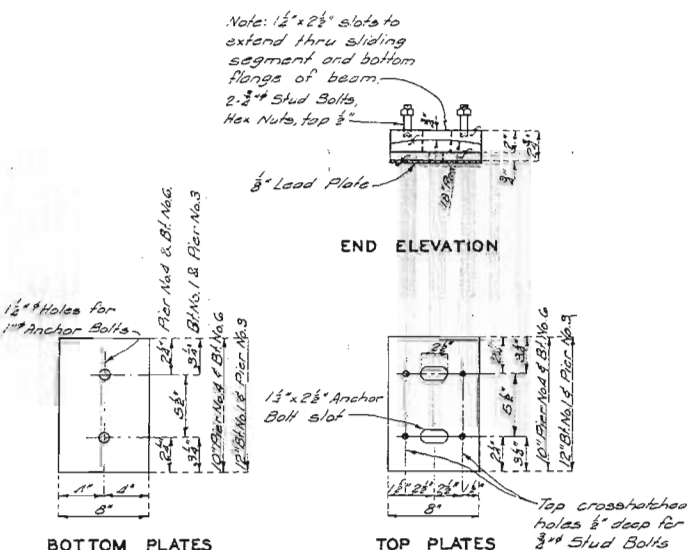 Note: 1½" x 2½" slots to
extend thru sliding
segment and bottom
flange of beam.
2-¾"ᶲ Stud Bolts,
Hex Nuts, tap ½"
⅛" Lead Plate
18" Rad.
2"
2¾"
¾"
END ELEVATION
1½"ᶲ Holes for
1"ᶲ Anchor Bolts
2¼" Pier No.4 & Bt. No.6.
3¼" Bt. No.1 & Pier No.3
5½"
2¼"
3¼"
10" Pier No.4 & Bt. No.6
12" Bt. No.1 & Pier No.3
4" 4"
8"
BOTTOM PLATES
2½"
1½" x 2½" Anchor
Bolt slot
2¼"
3¼"
5½"
2¼"
3¼"
10" Pier No.4 & Bt. No.6
12" Bt. No.1 & Pier No.3
1½" 2½" 2½" 1½"
8"
TOP PLATES
Tap crosshatched
holes ½" deep for
¾"ᶲ Stud Bolts